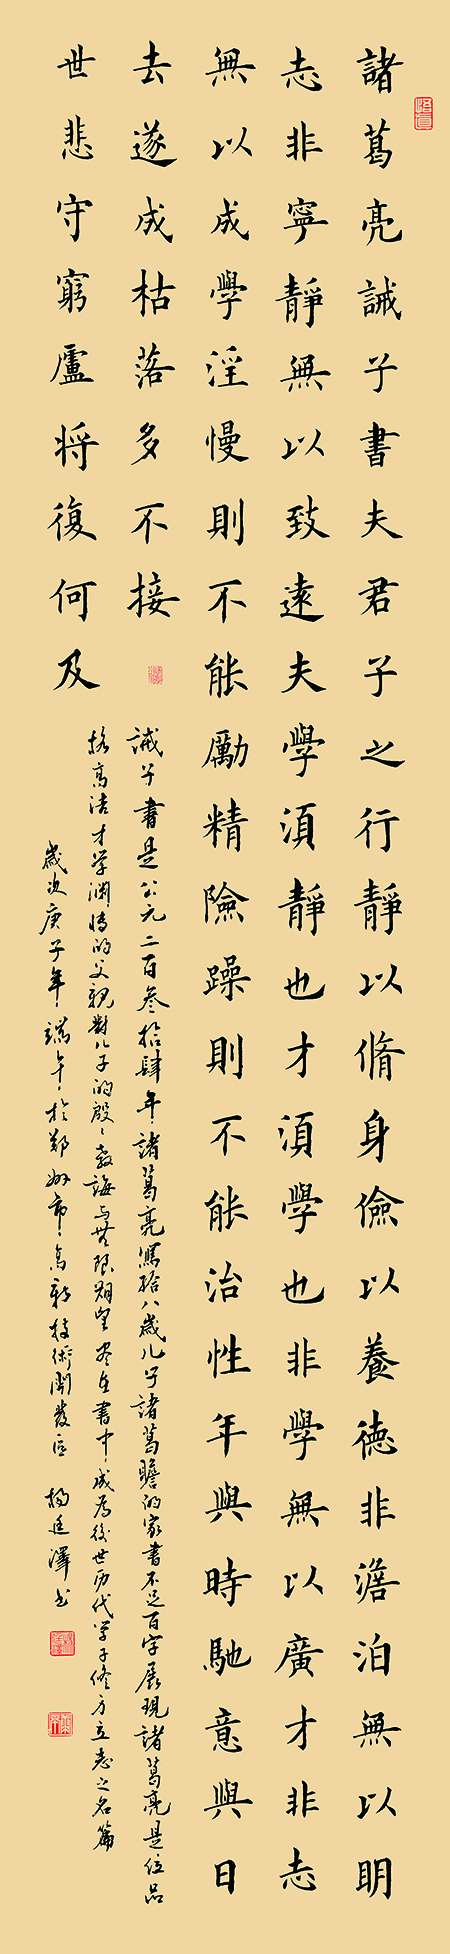 諸葛亮誡子書夫君子之行靜以脩身儉以養德非澹泊無以明
志非寧靜無以致遠夫學須靜也才須學也非學無以廣才非志
無以成學淫慢則不能勵精險躁則不能治性年與時馳意與日
去遂成枯落多不接
世悲守窮廬將復何及
誡子書是公元二百叁拾肆年諸葛亮寫給八歲儿子諸葛瞻的家書不足百字展現諸葛亮是位品
格高洁才学渊博的父親對儿子的殷殷教誨与無限期望尽在書中成為後世历代学子修身立志之名篇
歲次庚子年端午於郑州市高新技術開發区 杨廷澤书